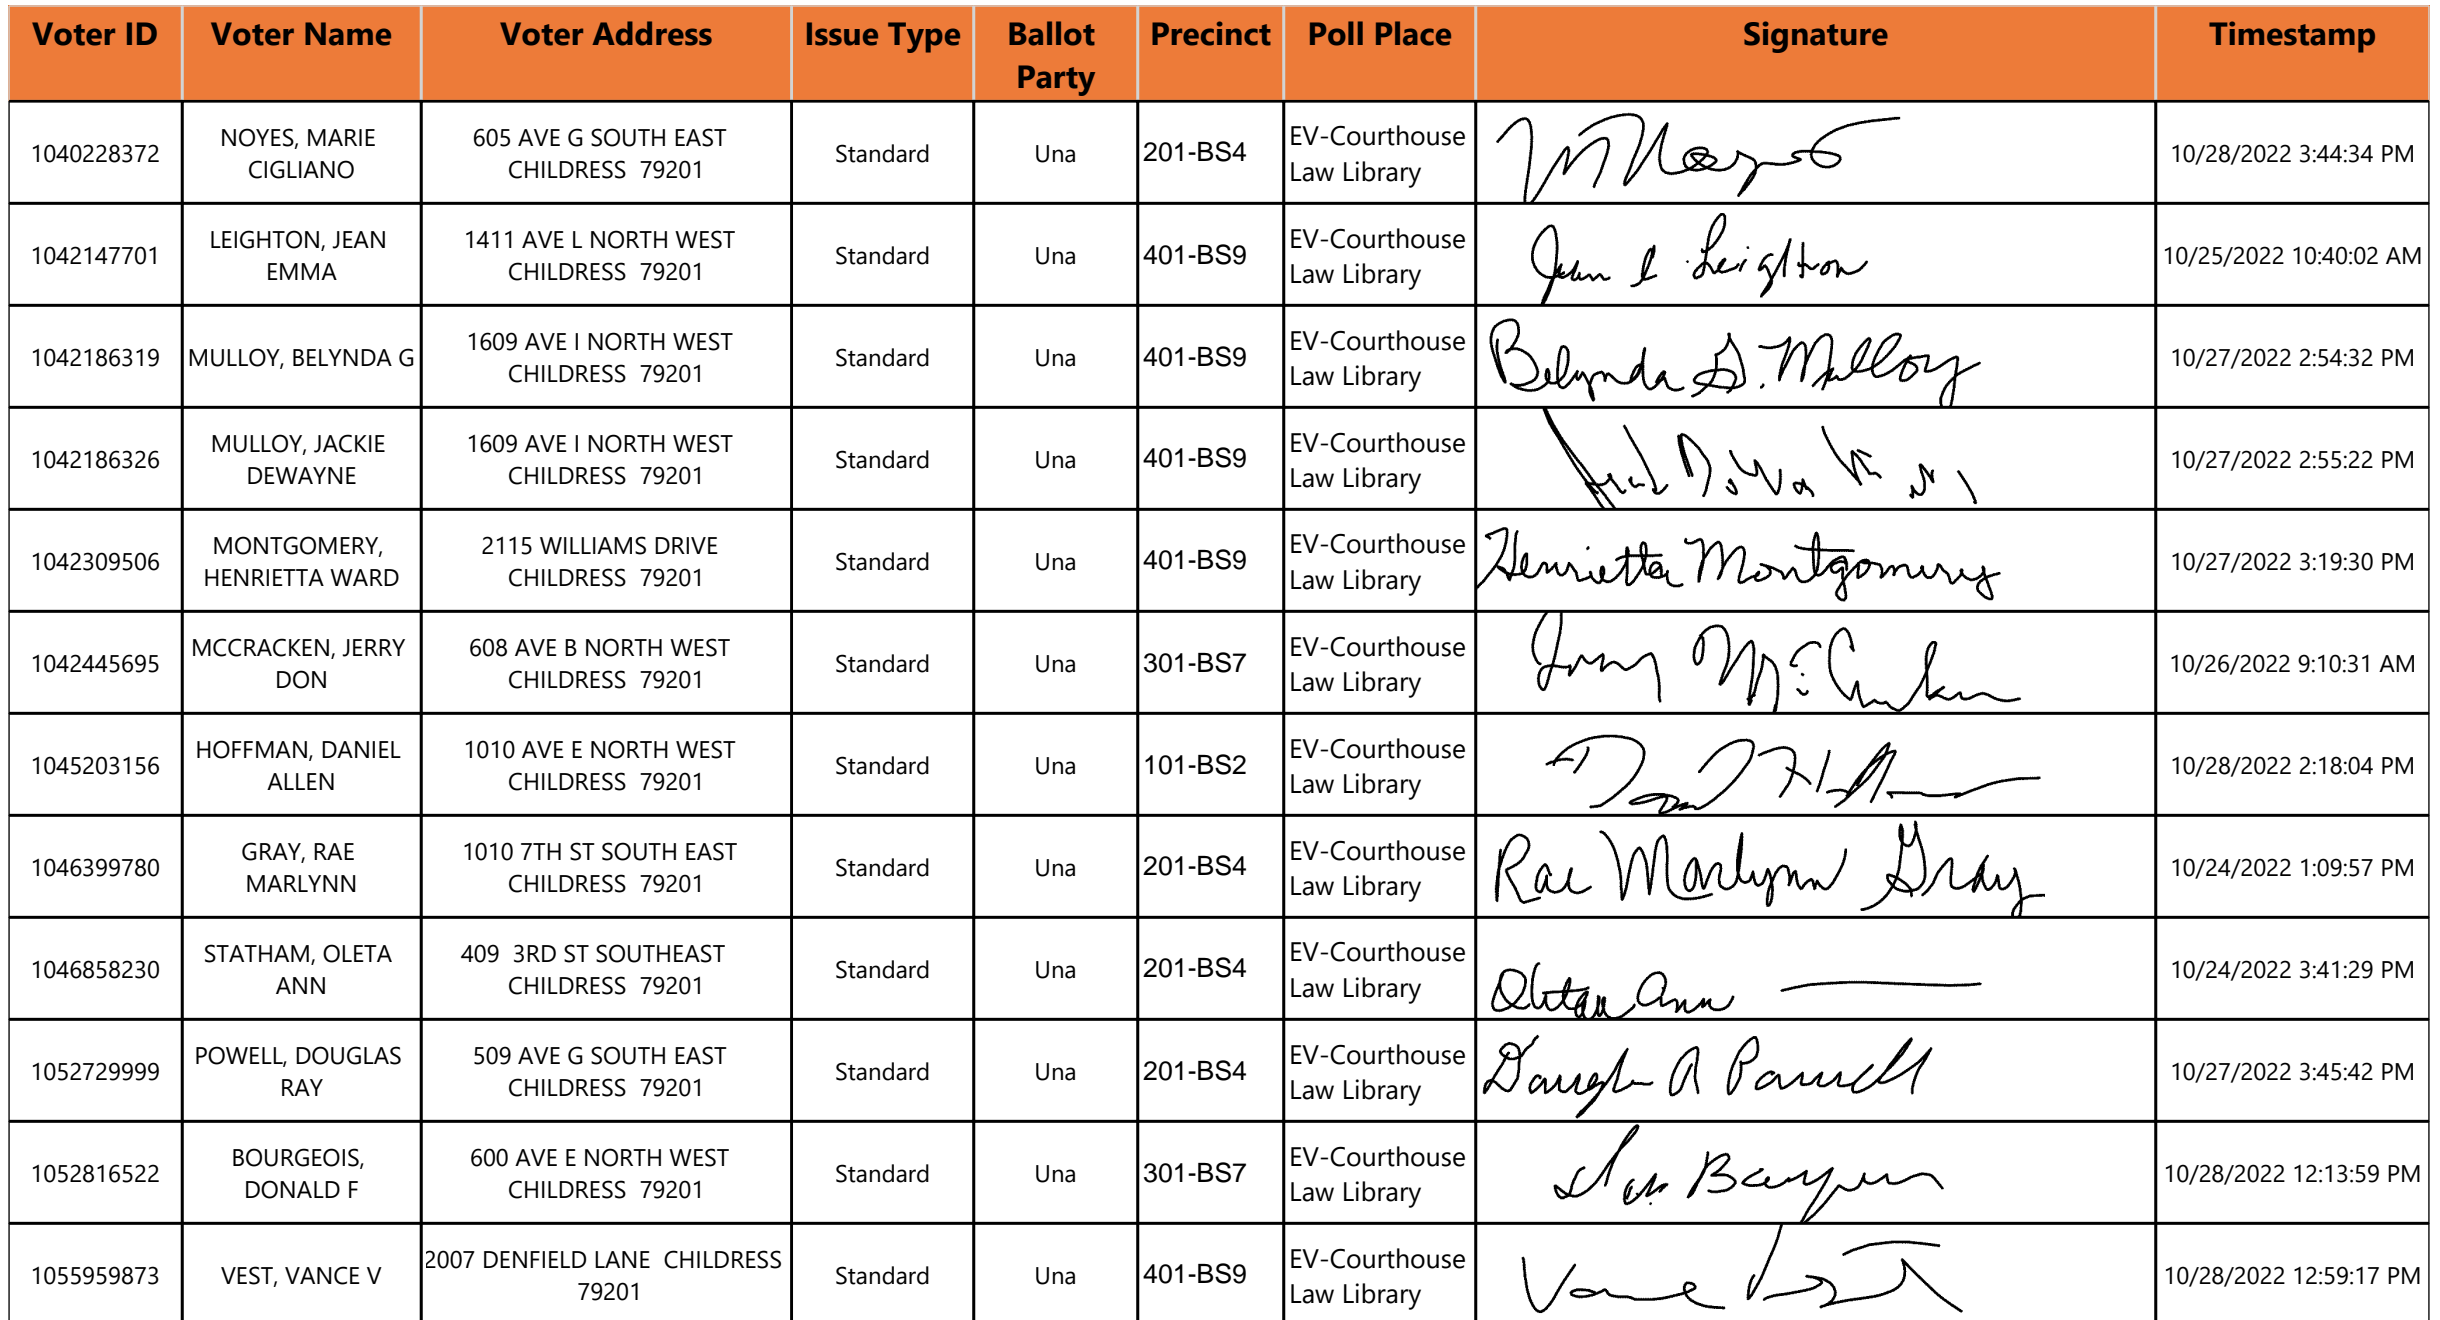 Voter ID Voter Name Voter Address Issue Type Ballot Party Precinct Poll Place Signature Timestamp
1040228372 NOYES, MARIE CIGLIANO 605 AVE G SOUTH EAST CHILDRESS 79201 Standard Una 201-BS4 EV-Courthouse Law Library 10/28/2022 3:44:34 PM
1042147701 LEIGHTON, JEAN EMMA 1411 AVE L NORTH WEST CHILDRESS 79201 Standard Una 401-BS9 EV-Courthouse Law Library Jean E Leighton 10/25/2022 10:40:02 AM
1042186319 MULLOY, BELYNDA G 1609 AVE I NORTH WEST CHILDRESS 79201 Standard Una 401-BS9 EV-Courthouse Law Library Belynda G. Mulloy 10/27/2022 2:54:32 PM
1042186326 MULLOY, JACKIE DEWAYNE 1609 AVE I NORTH WEST CHILDRESS 79201 Standard Una 401-BS9 EV-Courthouse Law Library 10/27/2022 2:55:22 PM
1042309506 MONTGOMERY, HENRIETTA WARD 2115 WILLIAMS DRIVE CHILDRESS 79201 Standard Una 401-BS9 EV-Courthouse Law Library Henrietta Montgomery 10/27/2022 3:19:30 PM
1042445695 MCCRACKEN, JERRY DON 608 AVE B NORTH WEST CHILDRESS 79201 Standard Una 301-BS7 EV-Courthouse Law Library Jerry McCracken 10/26/2022 9:10:31 AM
1045203156 HOFFMAN, DANIEL ALLEN 1010 AVE E NORTH WEST CHILDRESS 79201 Standard Una 101-BS2 EV-Courthouse Law Library 10/28/2022 2:18:04 PM
1046399780 GRAY, RAE MARLYNN 1010 7TH ST SOUTH EAST CHILDRESS 79201 Standard Una 201-BS4 EV-Courthouse Law Library Rae Marlynn Gray 10/24/2022 1:09:57 PM
1046858230 STATHAM, OLETA ANN 409 3RD ST SOUTHEAST CHILDRESS 79201 Standard Una 201-BS4 EV-Courthouse Law Library Ann 10/24/2022 3:41:29 PM
1052729999 POWELL, DOUGLAS RAY 509 AVE G SOUTH EAST CHILDRESS 79201 Standard Una 201-BS4 EV-Courthouse Law Library Douglas R Powell 10/27/2022 3:45:42 PM
1052816522 BOURGEOIS, DONALD F 600 AVE E NORTH WEST CHILDRESS 79201 Standard Una 301-BS7 EV-Courthouse Law Library 10/28/2022 12:13:59 PM
1055959873 VEST, VANCE V 2007 DENFIELD LANE CHILDRESS 79201 Standard Una 401-BS9 EV-Courthouse Law Library Vance Vest 10/28/2022 12:59:17 PM